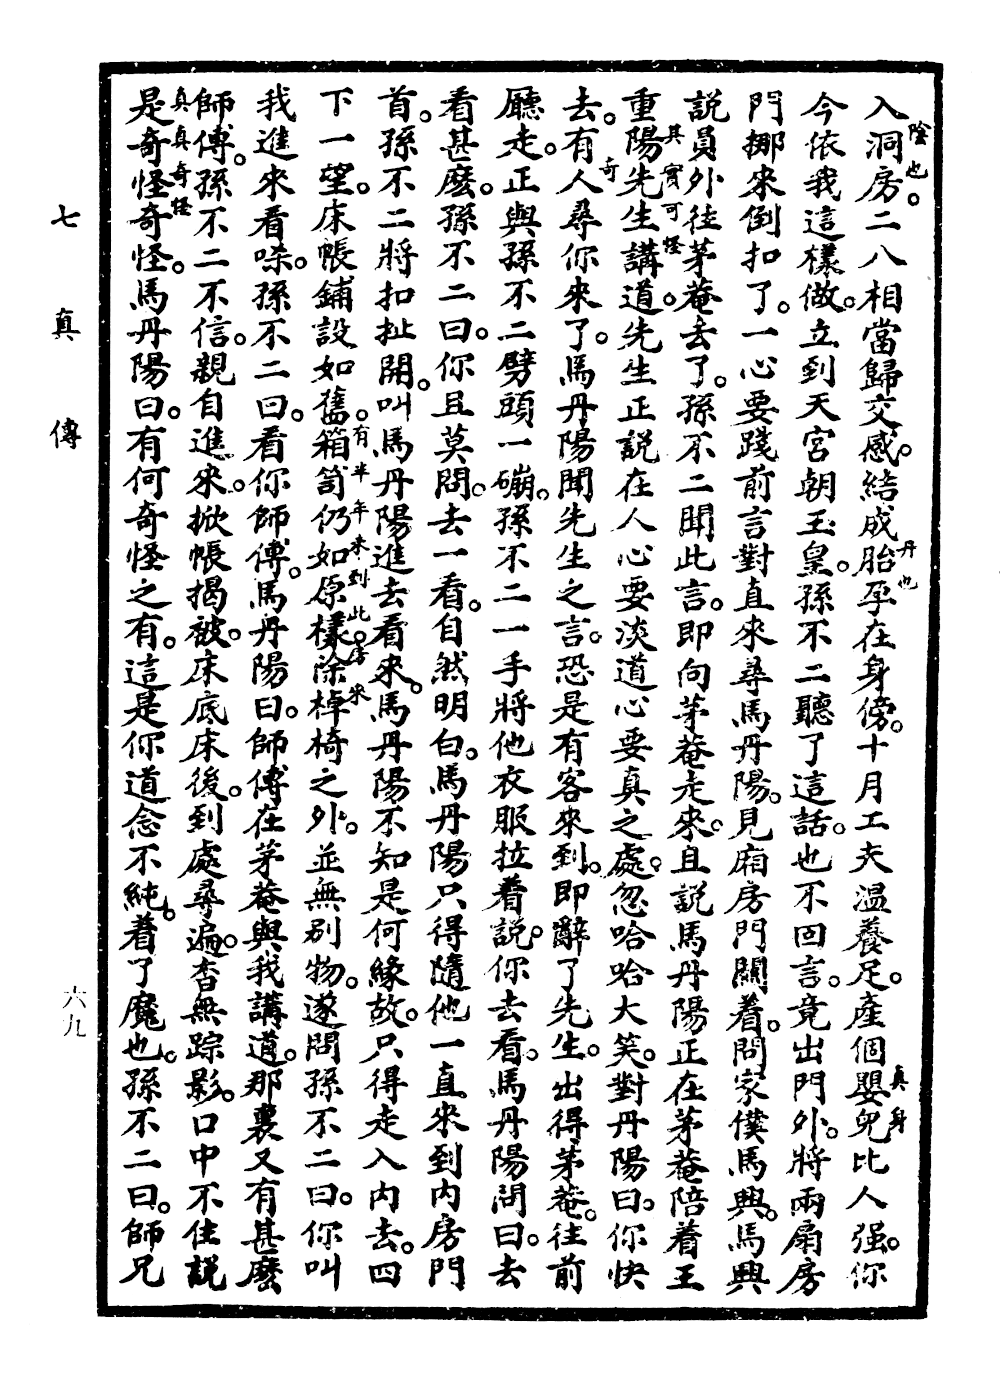 入洞房。二八相當歸交感。結成胎孕在身傍。十月工夫溫養足。產個嬰兒比人强。你
陰也。
丹也
真身
今依我這樣做。立到天宮朝玉皇。孫不二聽了這話。也不回言。竟出門外。將兩扇房
門挪來倒扣了。一心要踐前言。對直來尋馬丹陽。見廂房門關着。問家僕馬興。馬興
説員外往茅菴去了。孫不二聞此言。即向茅菴走來。且説馬丹陽正在茅菴陪着王
其實可怪
重陽先生講道。先生正説在人心要淡道心要真之處。忽哈哈大笑。對丹陽曰。你快
奇
去。有人尋你來了。馬丹陽聞先生之言。恐是有客來到。即辭了先生。出得茅菴。往前
廳走。正與孫不二劈頭一磞。孫不二一手將他衣服拉着説。你去看。馬丹陽問曰。去
看甚麽。孫不二曰。你且莫問。去一看。自然明白。馬丹陽只得隨他一直來到内房門
首。孫不二將扣扯開。叫馬丹陽進去看來。馬丹陽不知是何緣故。只得走入内去。四
下一望。床帳鋪設如舊。箱笥仍如原樣。除棹椅之外。並無别物。遂問孫不二曰。你叫
有半年未到此房來
我進來看啥。孫不二曰。看你師傅。馬丹陽曰。師傅在茅菴與我講道。那裏又有甚麽
師傅。孫不二不信。親自進來。掀帳揭被。床底床後。到處尋遍。杳無踪影。口中不住説
真真奇怪
是奇怪奇怪。馬丹陽曰。有何奇怪之有。這是你道念不純。着了魔也。孫不二曰。師兄
七真傳
六九